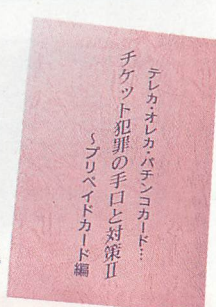 テレカ・オレカ・パチンコカード…
チケット犯罪の手口と対策Ⅱ
～プリペイドカード編